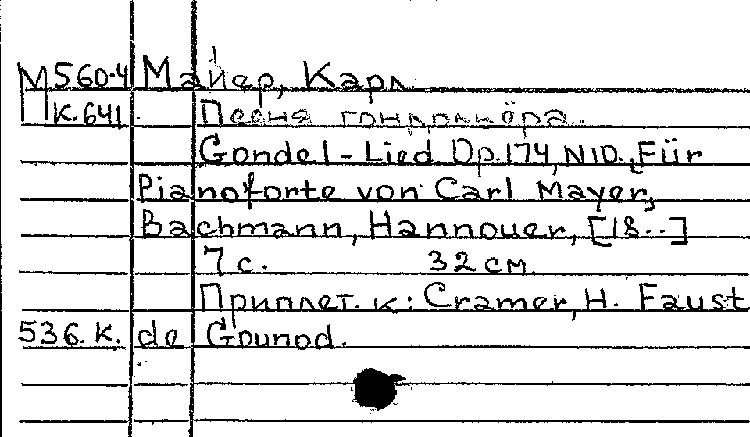 М560-4 Майер, Карл
К.641 Песня гондольёра.
Gondel-Lied Op.174, N10., Für
Pianoforte von Carl Mayer,
Bachmann, Hannover, [18..]
7 с. 32 см
Приплет. к: Cramer, H. Faust
536.К. de Gounod.